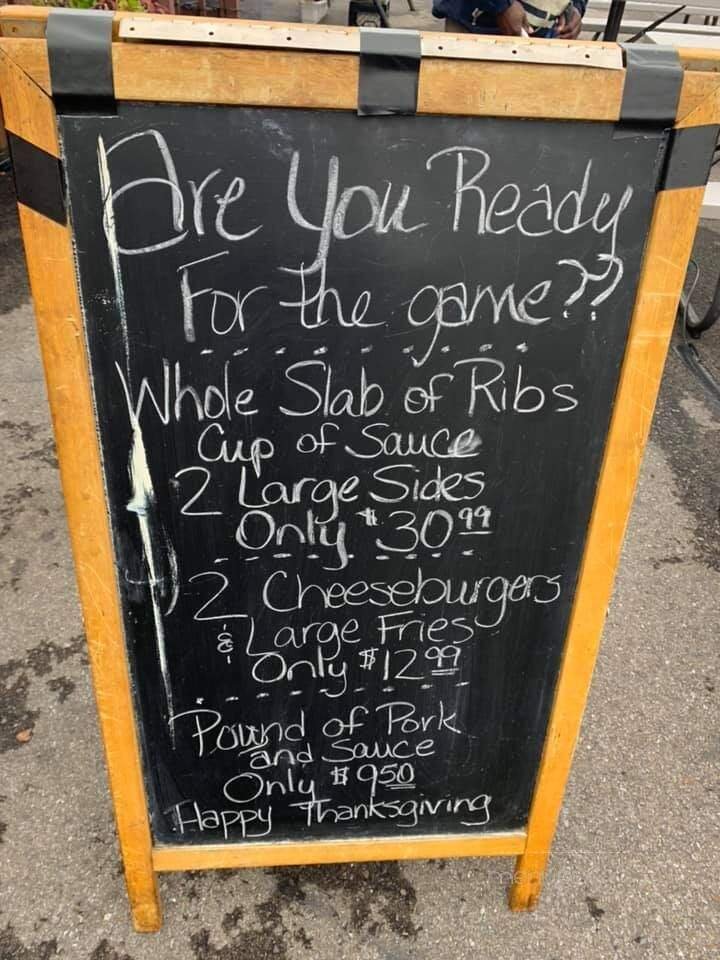 Are You Ready
For the game??
Whole Slab of Ribs
Cup of Sauce
2 Large Sides
Only $30 99
2 Cheeseburgers
& Large Fries
Only $12 99
Pound of Pork
and Sauce
Only $9 50
Happy Thanksgiving